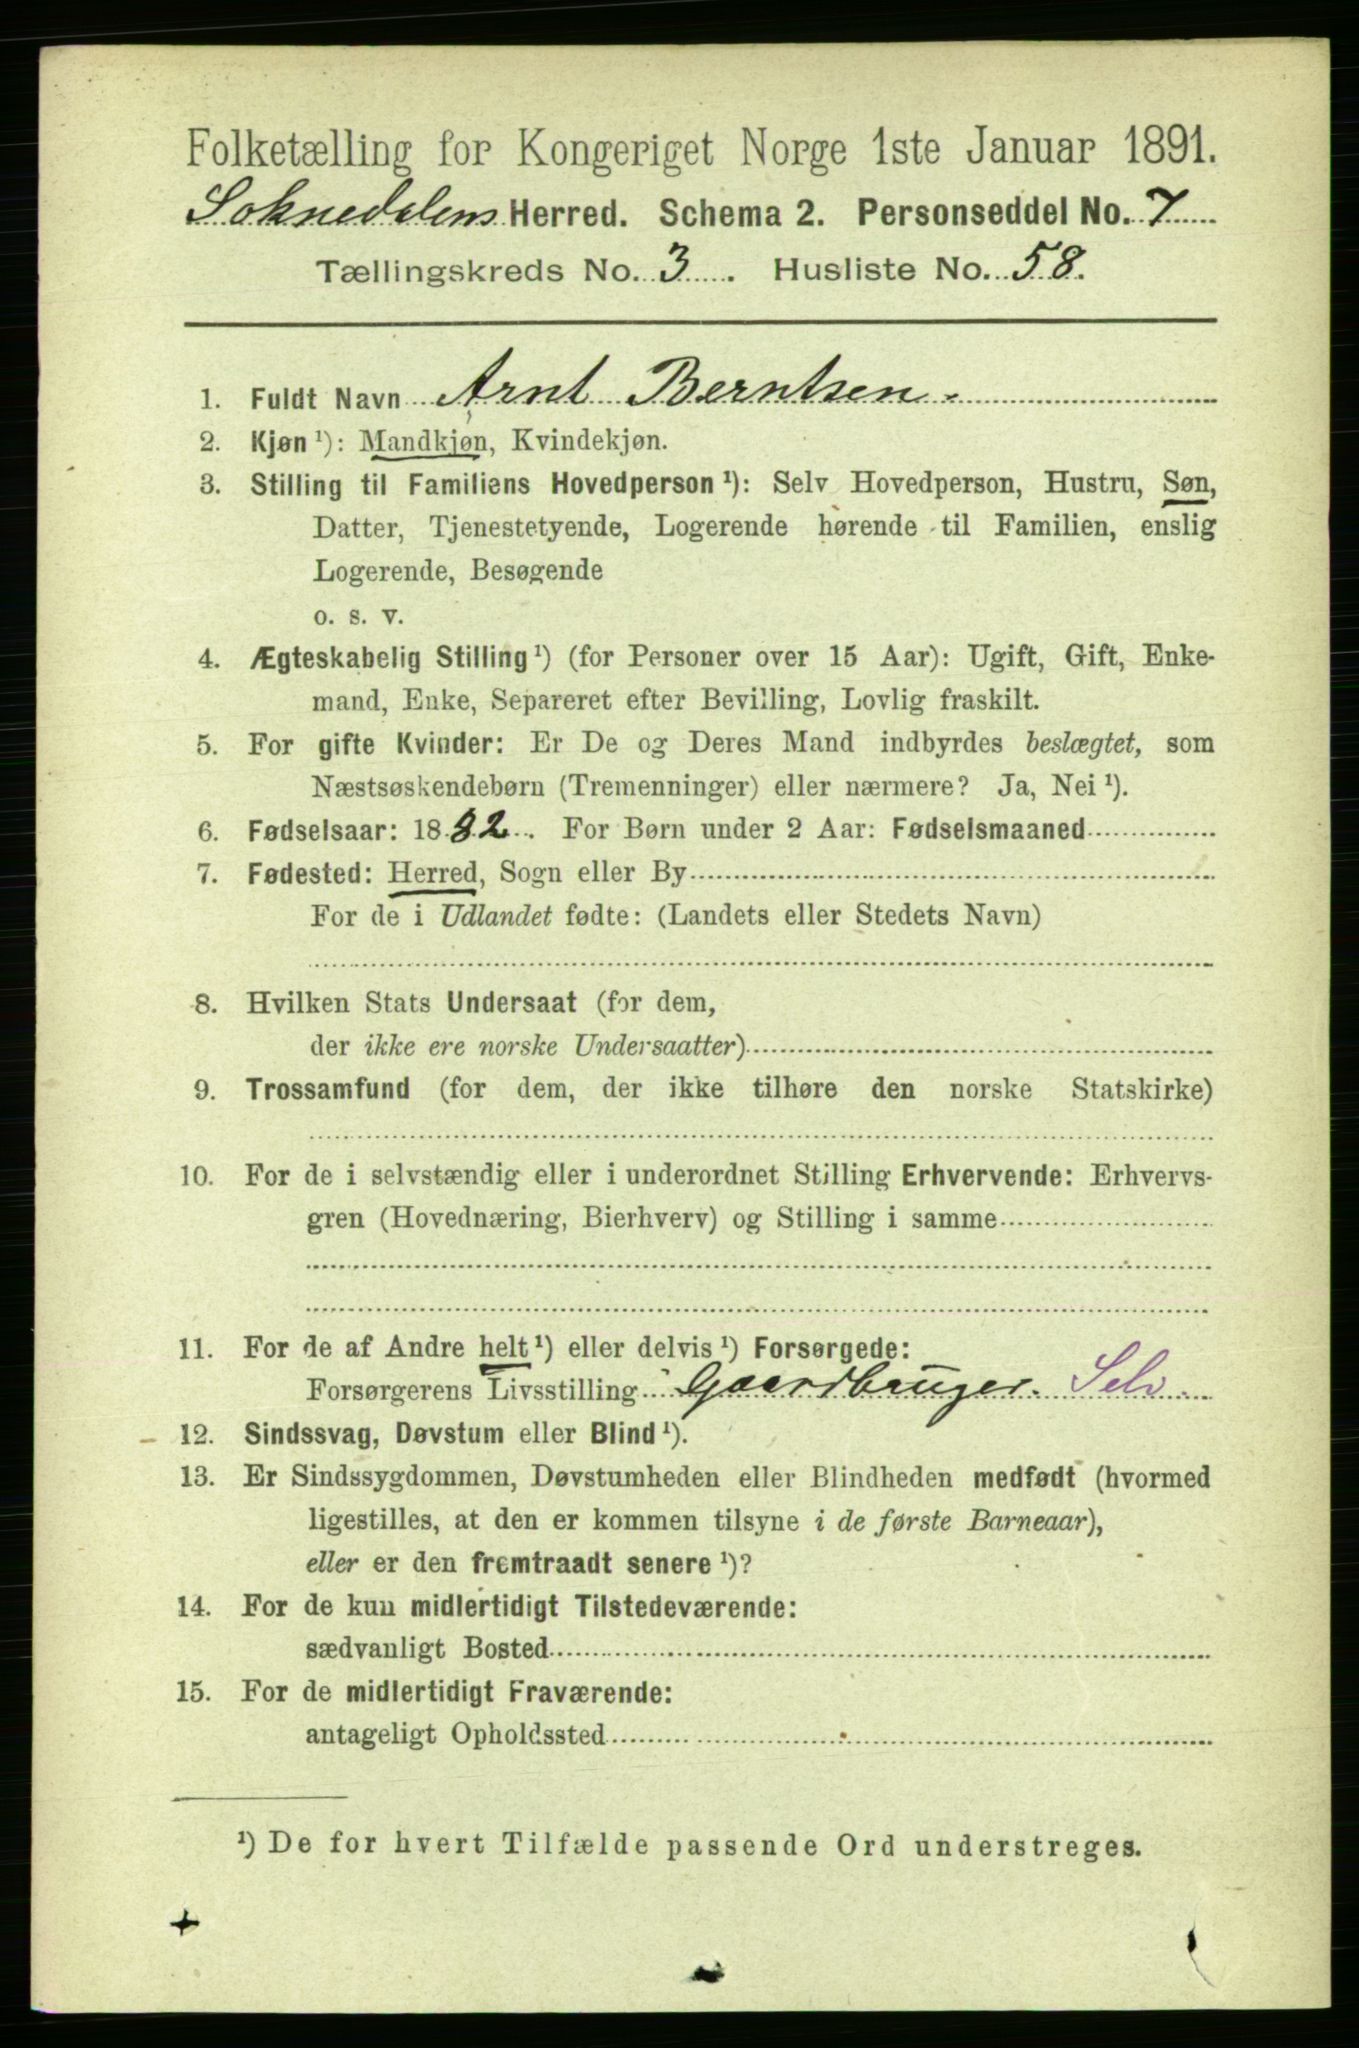 Folketælling for Kongeriget Norge 1ste Januar 1891.
Soknedalens Herred. Schema 2. Personseddel No. 7
Tællingskreds No. 3. Husliste No. 58.
1. Fuldt Navn Arnt Berntsen.
2. Kjøn ¹): Mandkjøn, Kvindekjøn.
3. Stilling til Familiens Hovedperson ¹): Selv Hovedperson, Hustru, Søn,
Datter, Tjenestetyende, Logerende hørende til Familien, enslig
Logerende, Besøgende
o. s. v.
4. Ægteskabelig Stilling ¹) (for Personer over 15 Aar): Ugift, Gift, Enke-
mand, Enke, Separeret efter Bevilling, Lovlig fraskilt.
5. For gifte Kvinder: Er De og Deres Mand indbyrdes beslægtet, som
Næstsøskendebørn (Tremenninger) eller nærmere? Ja, Nei ¹).
6. Fødselsaar: 1882. For Børn under 2 Aar: Fødselsmaaned
7. Fødested: Herred, Sogn eller By
For de i Udlandet fødte: (Landets eller Stedets Navn)
8. Hvilken Stats Undersaat (for dem,
der ikke ere norske Undersaatter)
9. Trossamfund (for dem, der ikke tilhøre den norske Statskirke)
10. For de i selvstændig eller i underordnet Stilling Erhvervende: Erhvervs-
gren (Hovednæring, Bierhverv) og Stilling i samme
11. For de af Andre helt ¹) eller delvis ¹) Forsørgede:
Forsørgerens Livsstilling Gaardbruger. Selv.
12. Sindssvag, Døvstum eller Blind ¹).
13. Er Sindssygdommen, Døvstumheden eller Blindheden medfødt (hvormed
ligestilles, at den er kommen tilsyne i de første Barneaar),
eller er den fremtraadt senere ¹)?
14. For de kun midlertidigt Tilstedeværende:
sædvanligt Bosted
15. For de midlertidigt Fraværende:
antageligt Opholdssted
¹) De for hvert Tilfælde passende Ord understreges.